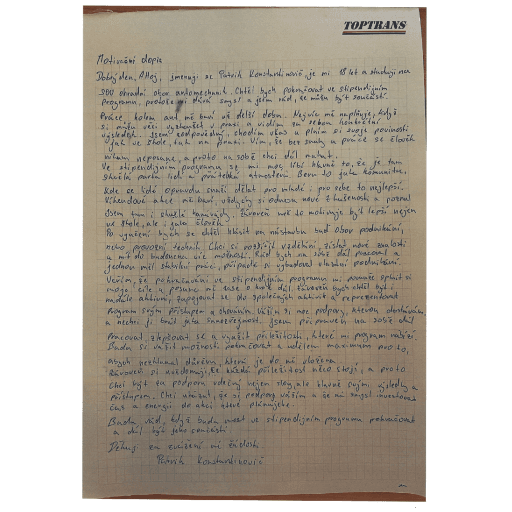 TOPTRANS
Motivační dopis
Dobrý den, Ahoj, jmenuji se Patrik Konstantinovič, je mi 18 let a studuji na
SOU obradní obor automechanik. Chtěl bych pokračovat ve stipendijním
Programu, protože mi dává smysl a jsem rád, že můžu být součástí.
Práce kolem aut mě baví už delší dobu. Nejvíc mě naplňuje, když
si můžu věci vyzkoušet v praxi a vidím za sebou konkrétní
výsledek. Jsem zodpovědný, chodím včas a plním si svoje povinosti
jak ve škole, tak na praxi. Vím, že bez snahy a práce se člověk
nikam neposune, a proto na sobě chci dál makat.
Ve stipendijním programu se mi moc líbí hlavně to, že je tam
skvělá parta lidí a přátelská atmosféra. Beru to jako komunitu,
kde se lidé opravdu snaží dělat pro mladé i pro sebe to nejlepší.
Víkendové akce mě baví, vždycky si odnesu nové zkušenosti a poznal
jsem tam i skvělé kamarády. Zároveň mě to motivuje být lepší nejen
ve škole, ale i jako člověk.
Po vyučení bych se chtěl hlásit na nástavbu buď obor podnikání,
nebo provozní technik. Chci si rozšířit vzdělání, získat nové znalosti
a mít do budoucna víc možností. Rád bych na sobě dál pracoval a
jednou měl stabilní práci, případně si vybudoval vlastní podnikání.
Věřím, že pokračování ve stipendijním programu mi pomůže splnit si
moje cíle a posune mě zase o krok dál. Zároveň bych chtěl být i
nadále aktivní, zapojovat se do společných aktivit a reprezentovat
program svým přístupem a chováním. Vážím si moc podpory, kterou dostávám,
a nechci ji brát jako samozřejmost. Jsem připraven na sobě dál
pracovat, zlepšovat se a využít příležitosti, které mi program nabízí.
Budu si vážit možnosti pokračovat a udělám maximum pro to,
abych nezklamal důvěru, která je do mě vložena
Zároveň si uvědomuji, že každá příležitost něco stojí, a proto
chci být za podporu vděčný nejen slovy, ale hlavně svými výsledky a
přístupem. Chci ukázat, že si podpory vážím a že má smysl investovat
čas a energii do akcí, které plánujete.
Budu rád, když budu moct ve stipendijním programu pokračovat
a dál být jeho součástí
Děkuji za zvážení mé žádosti.
Patrik Konstantinovič